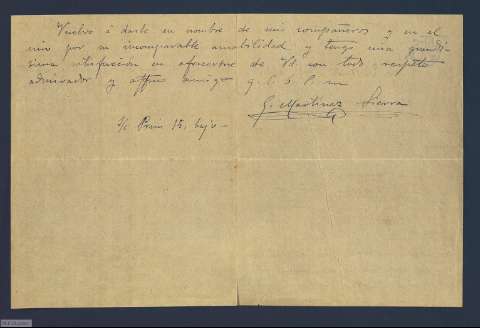 Vuelvo á darle en nombre de mis compañeros y en el
mio por su incomparable amabilidad, y tengo una grandi-
sima satisfacción en ofrecerme de Vd. con todo respeto
admirador y affmo amigo q. b. s. m
G. Martinez Sierra
S/c Prim 15, bajo -